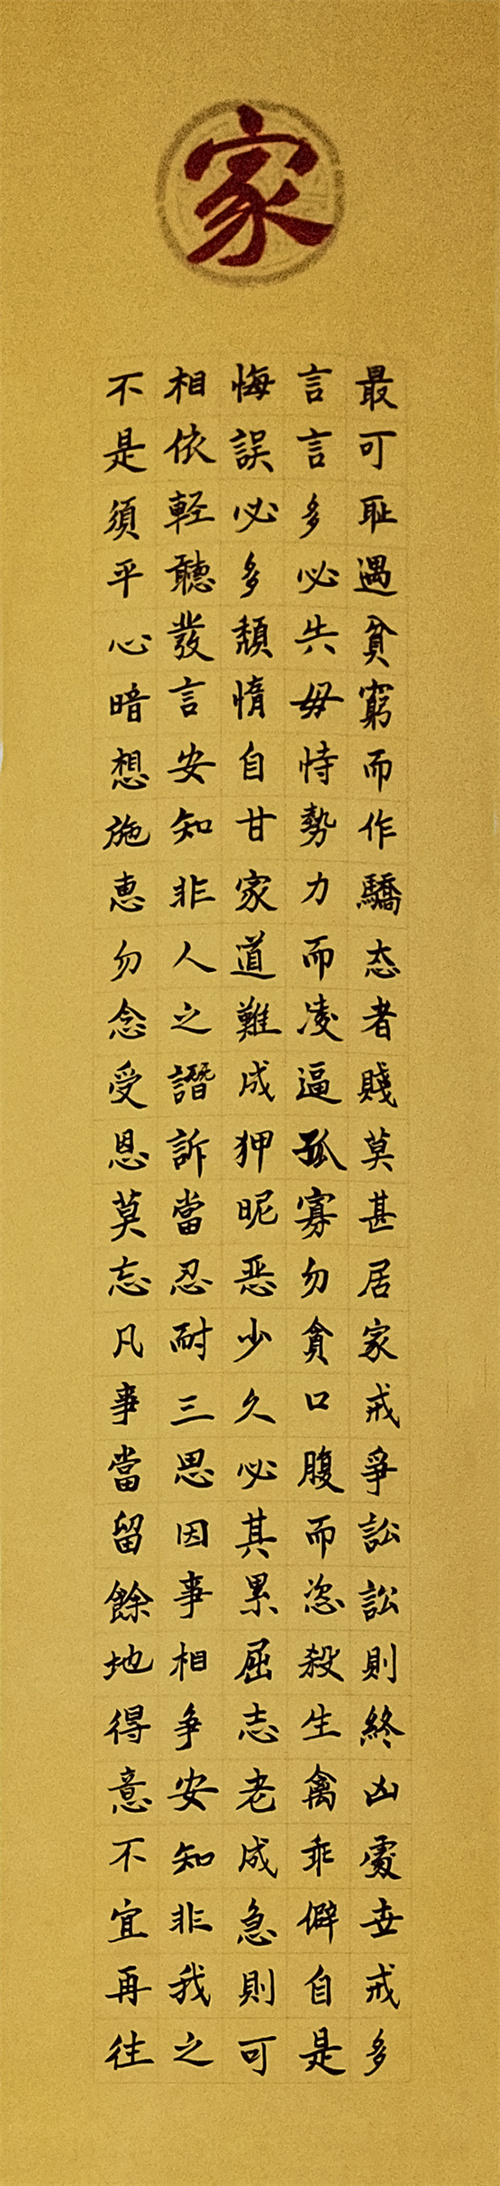 家
最可耻遇貧窮而作驕态者賤莫甚居家戒爭訟訟則終凶處世戒多
言言多必失毋恃勢力而凌逼孤寡勿貪口腹而恣殺生禽乖僻自是
悔誤必多頹惰自甘家道難成狎昵恶少久必其累屈志老成急則可
相依輕聽發言安知非人之譖訴當忍耐三思因事相争安知非我之
不是須平心暗想施恵勿念受恩莫忘凡事當留餘地得意不宜再往